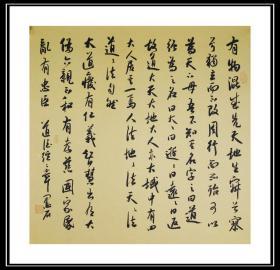 有物混成先天地生寂兮寥
兮独立而不改周行而不殆可以
为天下母吾不知其名字之曰道
强为之名曰大大曰逝逝曰远远曰返
故道大天大地大人亦大域中有四
大人居其一焉人法地地法天天法
道道法自然
大道废有仁义智慧出有大
伪六亲不和有孝慈国家昏
乱有忠臣 道德经二章